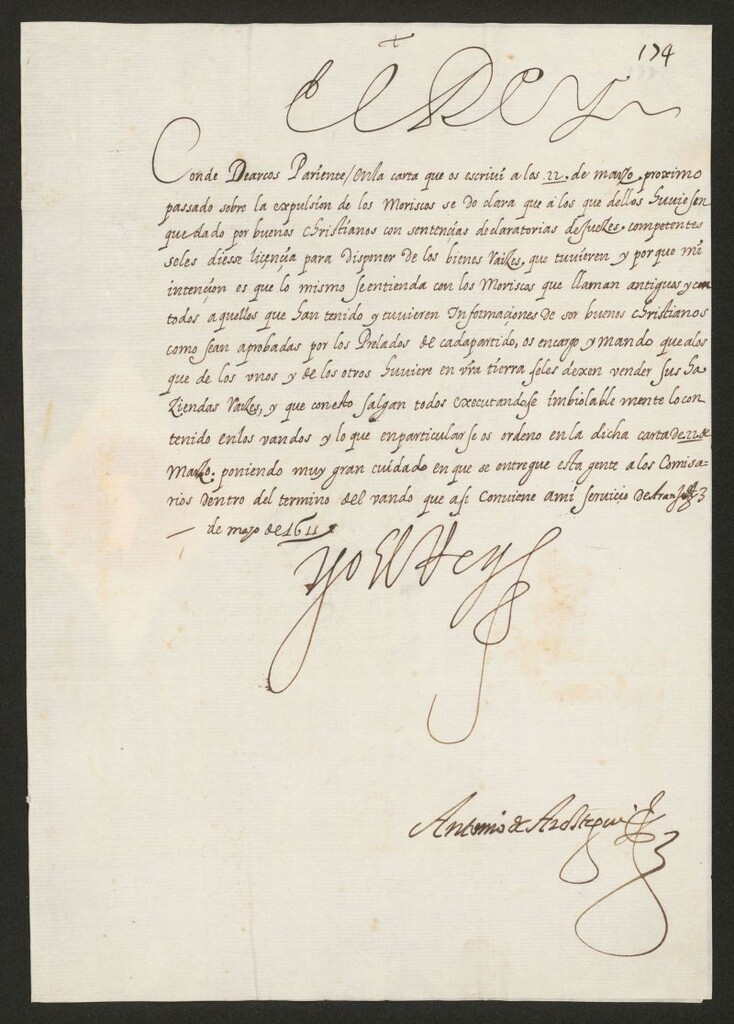 174
El Rey
Conde De arcos Pariente / en la carta que os escriui a los 22. de março proximo
passado sobre la expulsion de los Moriscos se de clara que a los que dellos huuiesen
quedado por buenos christianos con sentencias declaratorias de Juezes competentes
seles diesse liçençia para disponer de los bienes Raizes, que tuuieren y porque mi
intençion es que lo mismo se entienda con los Moriscos que llaman antiguos y con
todos aquellos que han tenido y tuuieren Informaçiones de ser buenos christianos
como sean aprobadas por los Prelados de cada partido, os encargo y mando que a los
que de los vnos y de los otros huuiere en vra tierra seles dexen vender sus ha
ziendas Raizes, y que con esto salgan todos executandose imbiolable mente lo con
tenido en los vandos y lo que en particular se os ordeno en la dicha carta de 22 de
Março. poniendo muy gran cuidado en que se entregue esta gente a los Comisa-
rios dentro del termino del vando que asi conviene a mi seruicio De Aranjz 3
de mayo de 1611
yo el Rey
Antonio de Arostegui